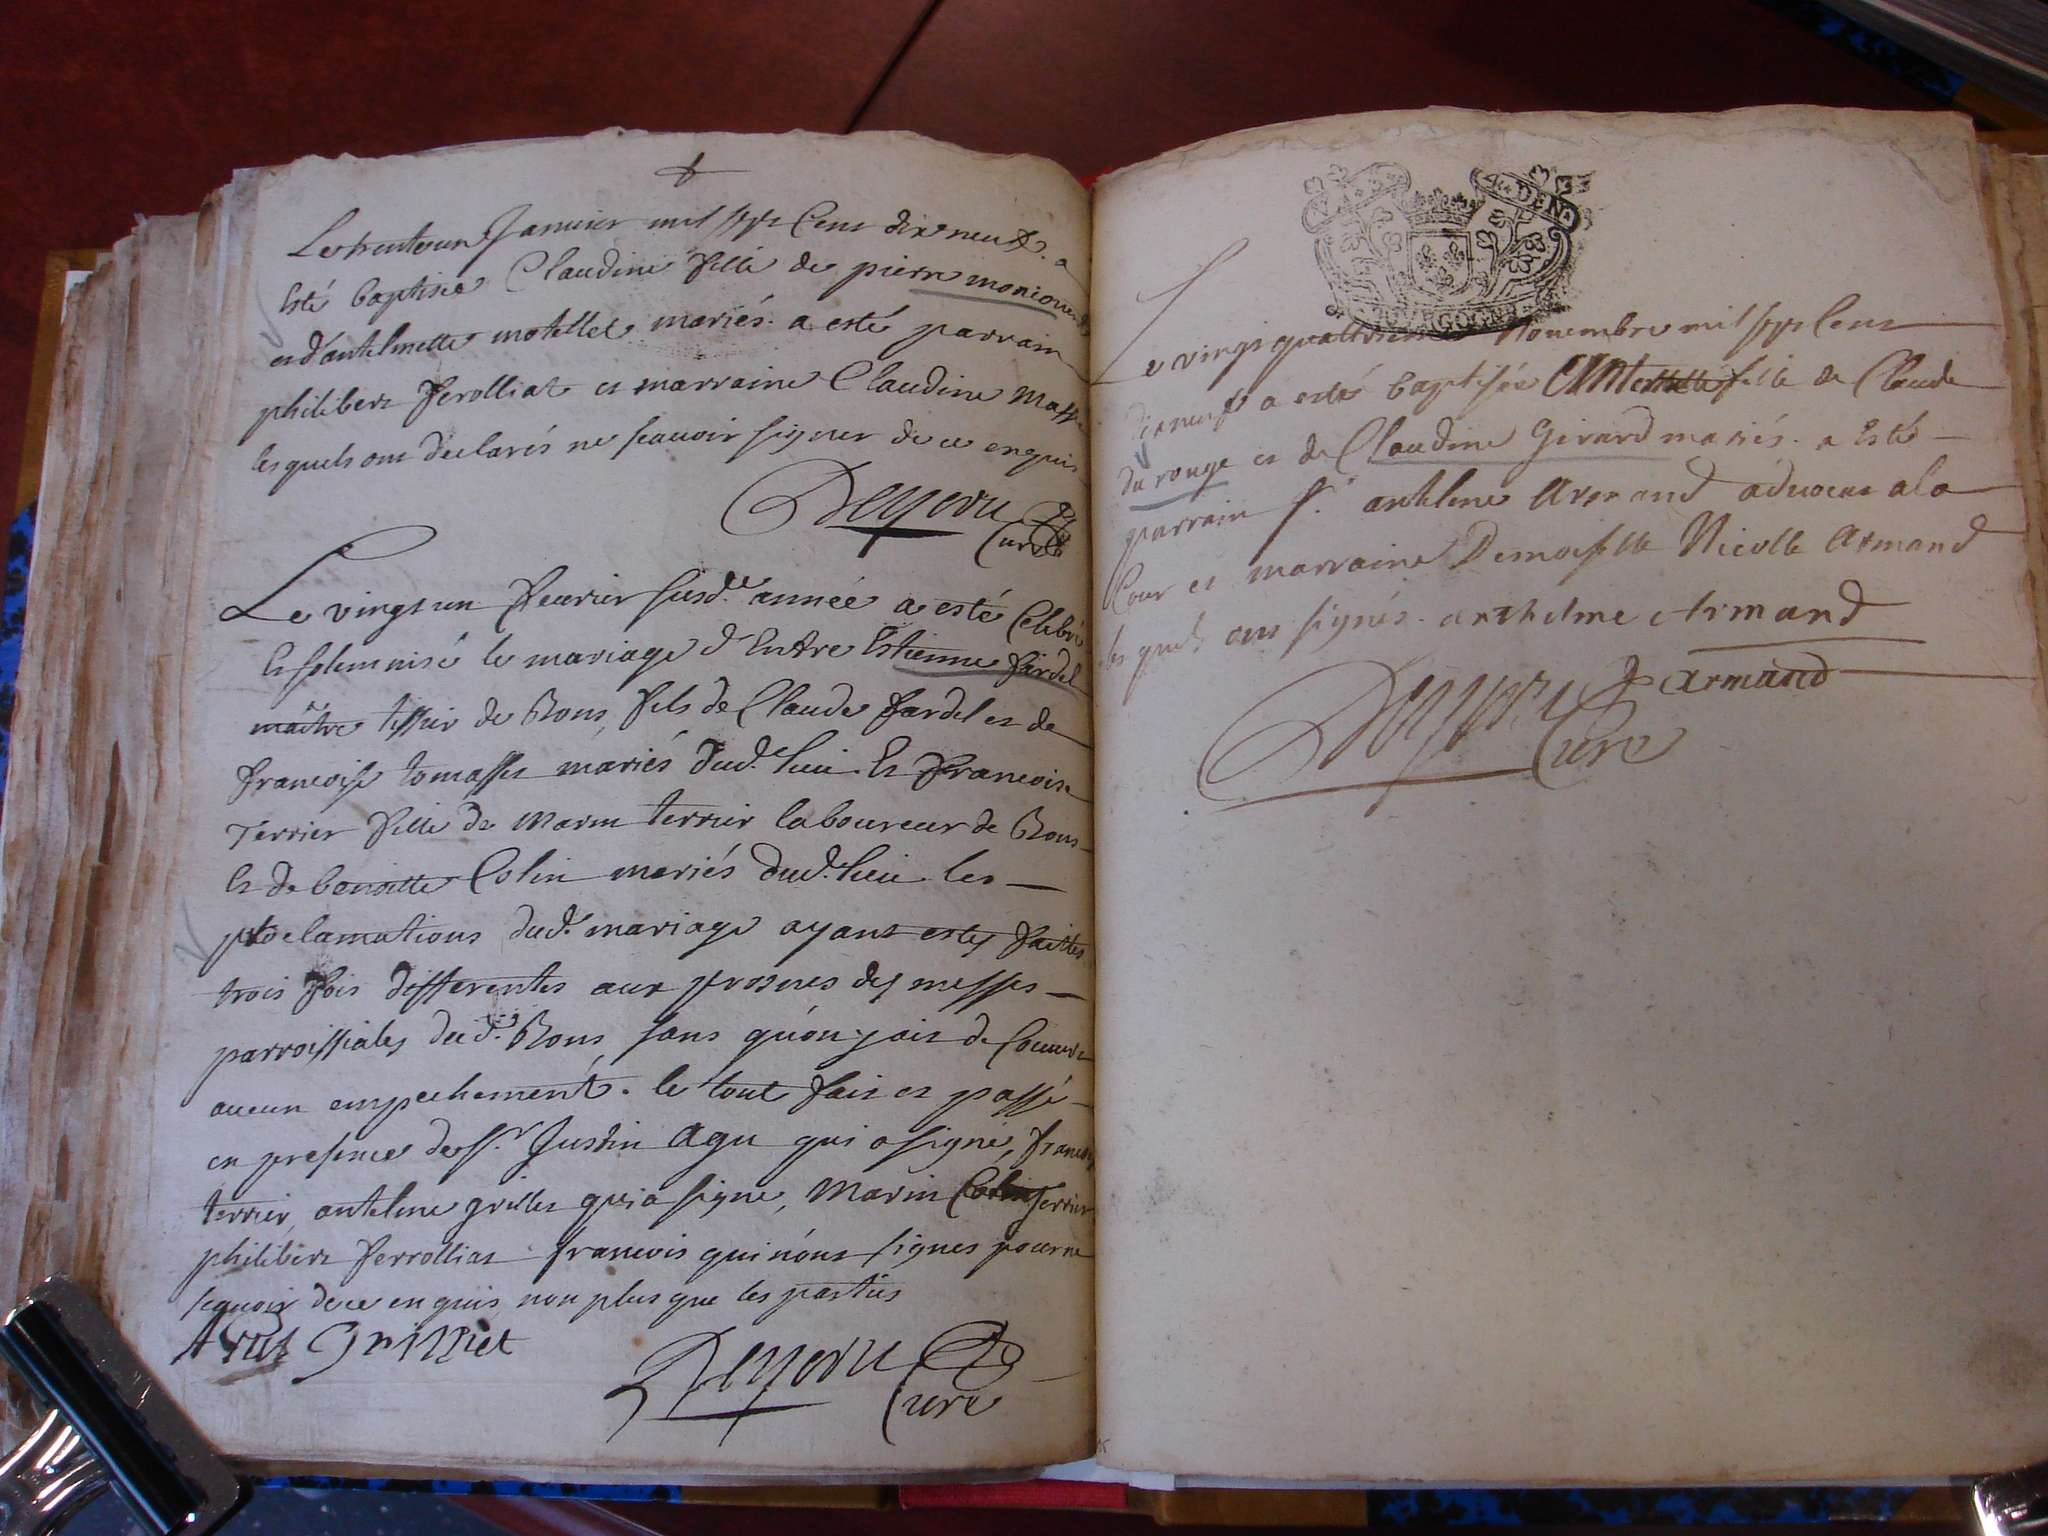 Le trenteun Janvier mil sept Cent dix neuf. a
Esté baptisée Claudine fille de pierre
et d'antelmette motellet mariés. a esté parrain
philibert ferolliat et marraine Claudine
lesquels ont declarés ne scavoir signer de ce enquis
Curé
Le vingt un fevrier susd.te année a esté Celebré
Et solemnisé le mariage d'Entre Estienne fardel
maître tissier de Rons, fils de Claude fardel et de
francoise tomasset mariés dud. lieu. Et francoise
Terrier fille de Marin terrier laboureur de Rons
Et de benoitte Colin mariés dud. lieu. les
proclamations dud. mariage ayant estés faittes
trois fois differentes aux prosnes des messes
parroissiales dud. Rons sans qu'on y ait decouvert
aucun empechement. le tout fait et passé
en presence de s.r Justin Agu qui a signé, francois
terrier, antelme grillet qui a signe, Marin terrier
philibert ferrolliat francois qui n'ont signes pour ne
scavoir de ce enquis non plus que les parties
Grilliet
Curé
DEN
Le vingt quattrieme Novembre mil sept Cent
dixneuf a esté baptisée fille de Claude
du rouge et de Claudine Girard mariés. a Esté
parrain s.r antelme Armand advocat a la
Cour et marraine Demoiselle Nicolle Armand
les quels ont signés. anthelme Armand
armand
Curé